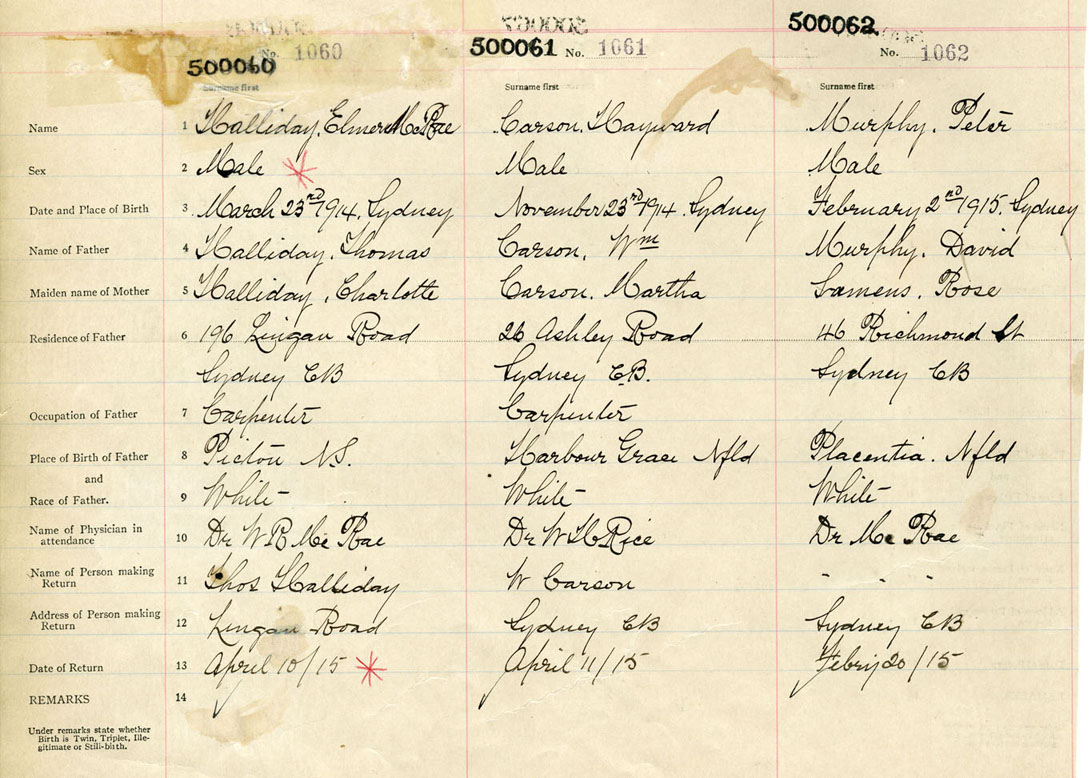 500060 No. 1060 500061 No. 1061 500062. No. 1062
Surname first Surname first Surname first
Name 1 Halliday, Elmere McRae Carson, Hayward Murphy, Peter
Sex 2 Male Male Male
Date and Place of Birth 3 March 23rd 1914. Sydney November 23rd 1914. Sydney February 2nd 1915. Sydney
Name of Father 4 Halliday, Thomas Carson, Wm Murphy, David
Maiden name of Mother 5 Halliday, Charlotte Carson, Martha Rose
Residence of Father 6 196 Lingan Road 26 Ashley Road 46 Richmond St
Sydney CB Sydney C.B. Sydney CB
Occupation of Father 7 Carpenter Carpenter
Place of Birth of Father 8 Pictou N.S. Harbour Grace Nfld Placentia. Nfld
and
Race of Father. 9 White White White
Name of Physician in
attendance 10 Dr W R Mc Rae Dr W H Rice Dr Mc Rae
Name of Person making
Return 11 Thos Halliday W Carson " " "
Address of Person making
Return 12 Lingan Road Sydney CB Sydney CB
Date of Return 13 April 10/15 April 11/15 Febry 20/15
REMARKS 14
Under remarks state whether
Birth is Twin, Triplet, Ille-
gitimate or Still-birth.